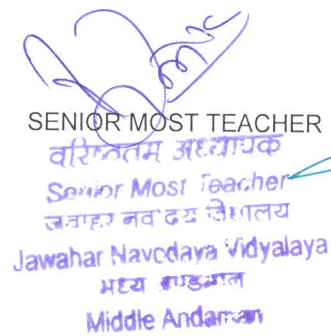 SENIOR MOST TEACHER
वरिष्ठतम अध्यापक
Senior Most Teacher
जवाहर नवोदय विद्यालय
Jawahar Navodaya Vidyalaya
मध्य अण्डमान
Middle Andaman